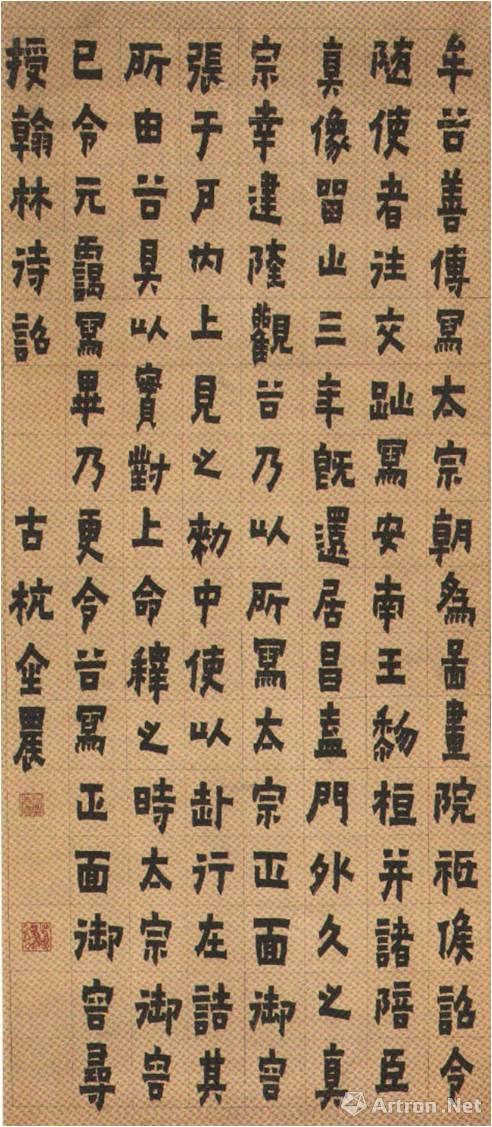 牟谷善傳寫太宗朝爲啚畫院祗侯詔令
随使者往交趾寫安南王黎桓并諸陪臣
真像留止三年既還居昌盍門外久之真
宗幸建隆觀谷乃以所寫太宗正面御容
張于戶内上見之勑中使以赴行左詰其
所由谷具以實對上命釋之時太宗御容
已令元靄寫畢乃更令谷寫正面御容尋
授翰林待詔 古杭金農
Artron.Net